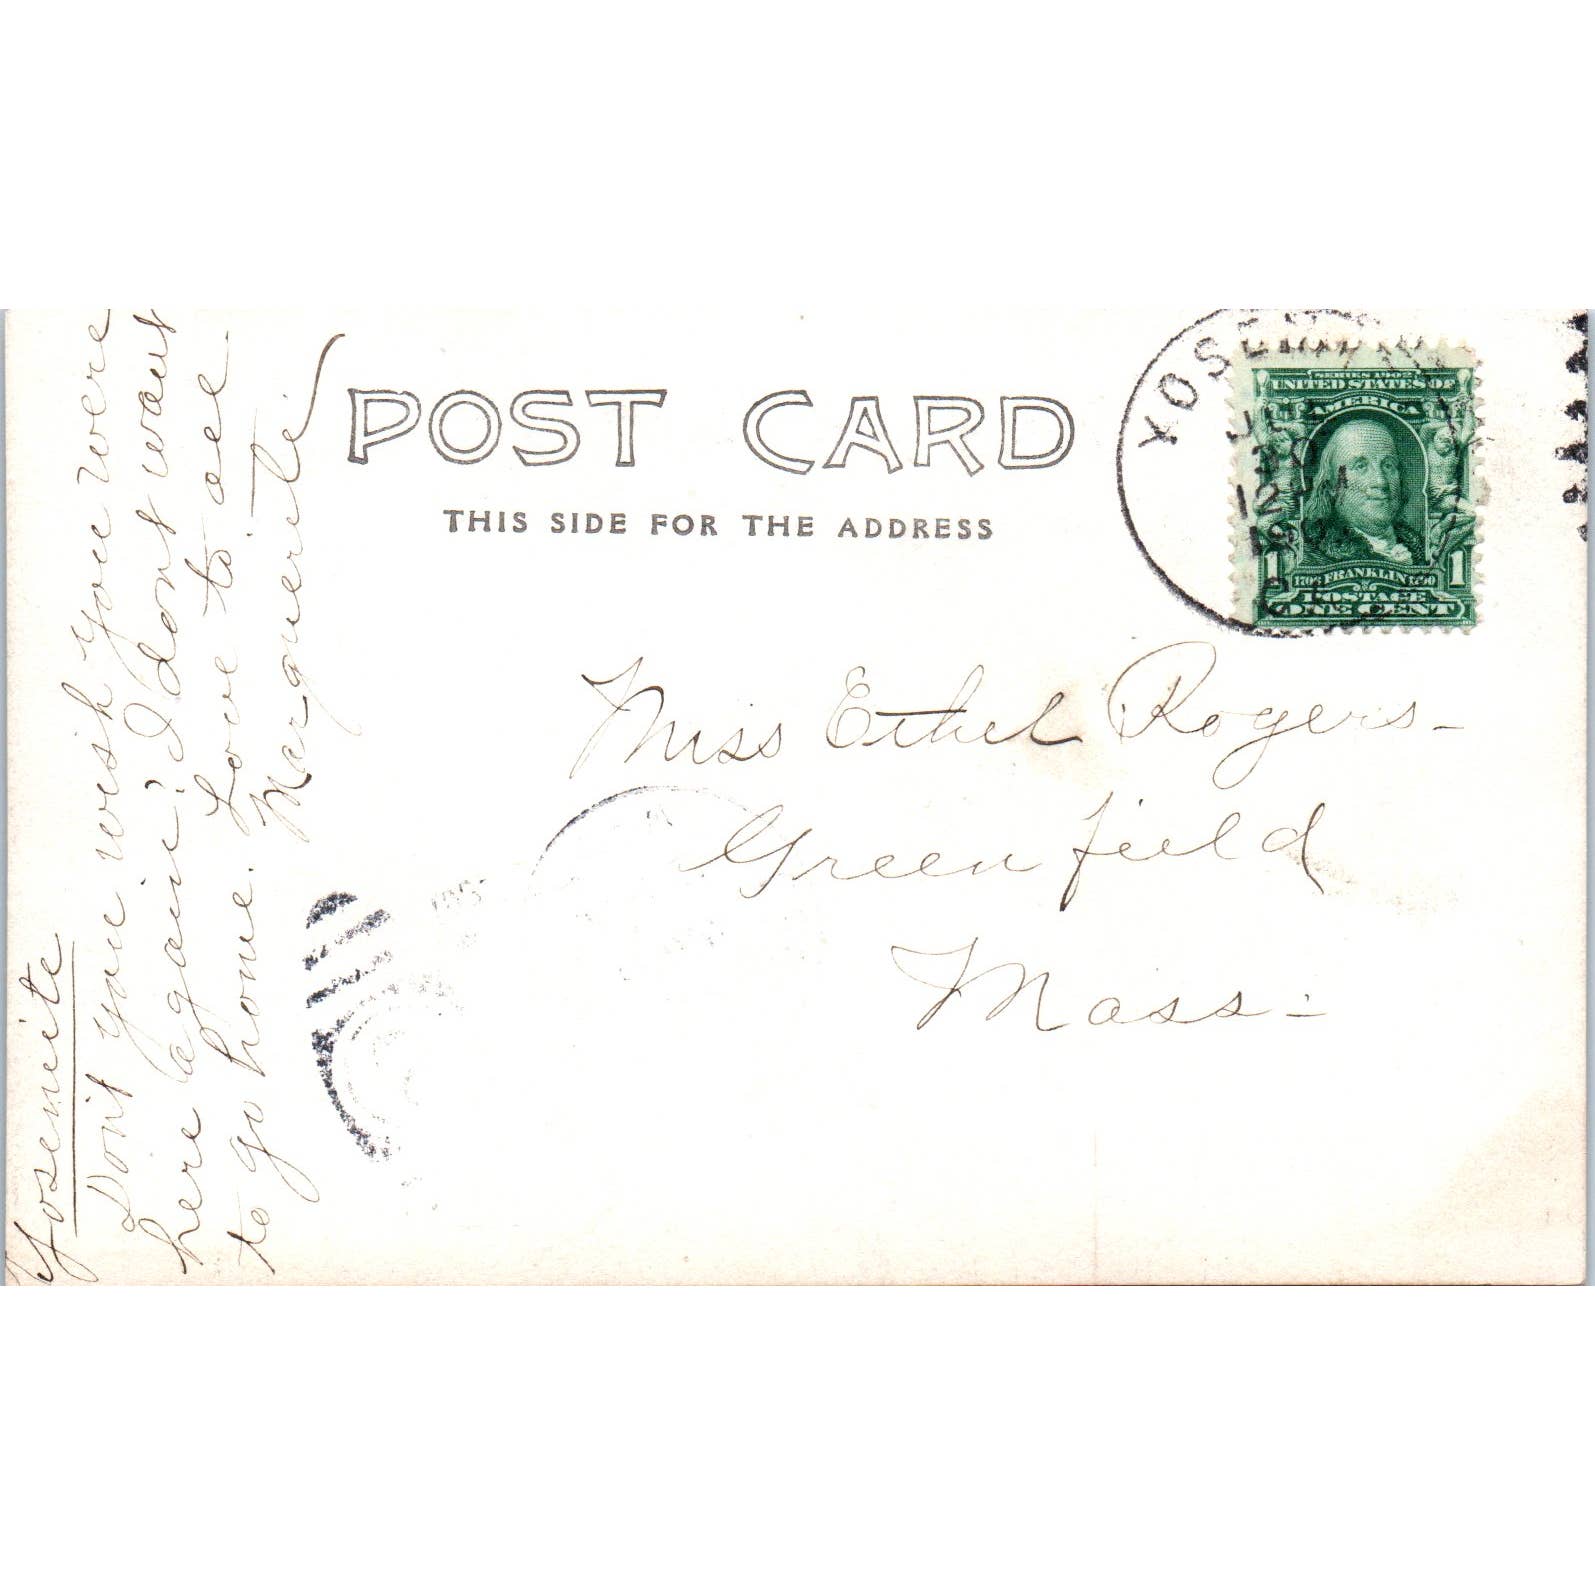 POST CARD
THIS SIDE FOR THE ADDRESS
Yosemite
Don't you wish you were
here again? I dont want
to go home. Love to all
Marguerite
Miss Ethel Rogers-
Greenfield
Mass-
YOSEMITE
12 M
SERIES 1902
UNITED STATES OF
AMERICA
1 1706 FRANKLIN 1790 1
POSTAGE
ONE CENT